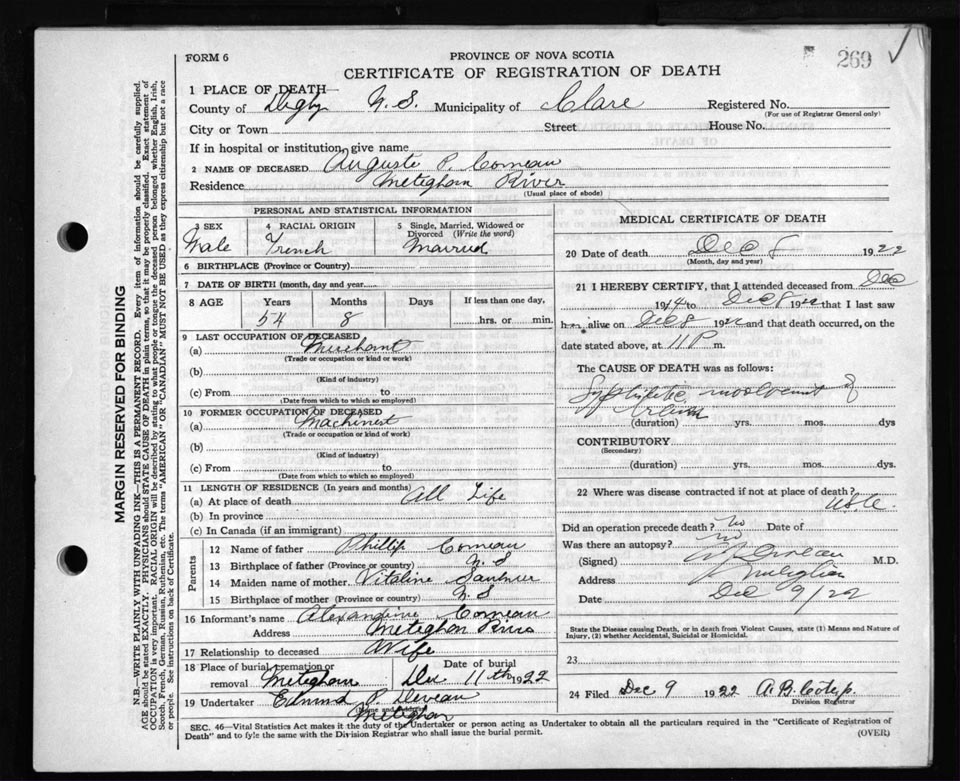 FORM 6
PROVINCE OF NOVA SCOTIA
269 ✓
CERTIFICATE OF REGISTRATION OF DEATH
1 PLACE OF DEATH—
County of Digby N.S. Municipality of Clare Registered No.
(For use of Registrar General only)
City or Town Street House No.
If in hospital or institution, give name
2 NAME OF DECEASED Auguste P. Comeau
Residence Meteghan River
(Usual place of abode)
PERSONAL AND STATISTICAL INFORMATION
3 SEX 4 RACIAL ORIGIN 5 Single, Married, Widowed or Divorced (Write the word)
Male French Married
6 BIRTHPLACE (Province or Country)
7 DATE OF BIRTH (month, day and year)
8 AGE Years Months Days If less than one day,
54 8 hrs. or min.
9 LAST OCCUPATION OF DECEASED
(a) Merchant
(Trade or occupation or kind of work)
(b)
(Kind of industry)
(c) From to
(Date from which to which so employed)
10 FORMER OCCUPATION OF DECEASED
(a) Machinest
(Trade or occupation or kind of work)
(b)
(Kind of industry)
(c) From to
(Date from which to which so employed)
11 LENGTH OF RESIDENCE (In years and months)
(a) At place of death All Life
(b) In province
(c) In Canada (if an immigrant)
Parents
12 Name of father Phillip Comeau
13 Birthplace of father (Province or country) N.S
14 Maiden name of mother Vitaline Saulnier
15 Birthplace of mother (Province or country) N.S
16 Informant's name Alexandine Comeau
Address Meteghan River
17 Relationship to deceased Wife
18 Place of burial, cremation or removal Meteghan Date of burial Dec 11th 1922
19 Undertaker Edmund P. Deveau
(Name and address)
Meteghan
MEDICAL CERTIFICATE OF DEATH
20 Date of death Dec 8 1922
(Month, day and year)
21 I HEREBY CERTIFY, that I attended deceased from Dec
1914 to Dec 8 1922 that I last saw
him alive on Dec 8 1922 and that death occurred, on the
date stated above, at 11 P m.
The CAUSE OF DEATH was as follows:
Syphilitic of
(duration) yrs. mos. dys
CONTRIBUTORY
(Secondary)
(duration) yrs. mos. dys.
22 Where was disease contracted if not at place of death?
Did an operation precede death? no Date of
Was there an autopsy? no
(Signed) M.D.
Address Meteghan
Date Dec 9/22
State the Disease causing Death, or in death from Violent Causes, state (1) Means and Nature of Injury, (2) whether Accidental, Suicidal or Homicidal.
23
24 Filed Dec 9 1922
Division Registrar
SEC. 46—Vital Statistics Act makes it the duty of the Undertaker or person acting as Undertaker to obtain all the particulars required in the "Certificate of Registration of
Death" and to fyle the same with the Division Registrar who shall issue the burial permit.
(OVER)
MARGIN RESERVED FOR BINDING
N.B.—WRITE PLAINLY WITH UNFADING INK—THIS IS A PERMANENT RECORD. Every item of information should be carefully supplied.
AGE should be stated EXACTLY. PHYSICIANS should STATE CAUSE OF DEATH in plain terms, so that it may be properly classified. Exact statement of
OCCUPATION is very important. RACIAL ORIGIN will be described by stating to what people or tongue the deceased person belonged whether English, Irish,
Scotch, French, German, Russian, Ruthenian, etc. The terms "AMERICAN" OR "CANADIAN" MUST NOT BE USED as they express citizenship but not a race
or people. See instructions on back of Certificate.